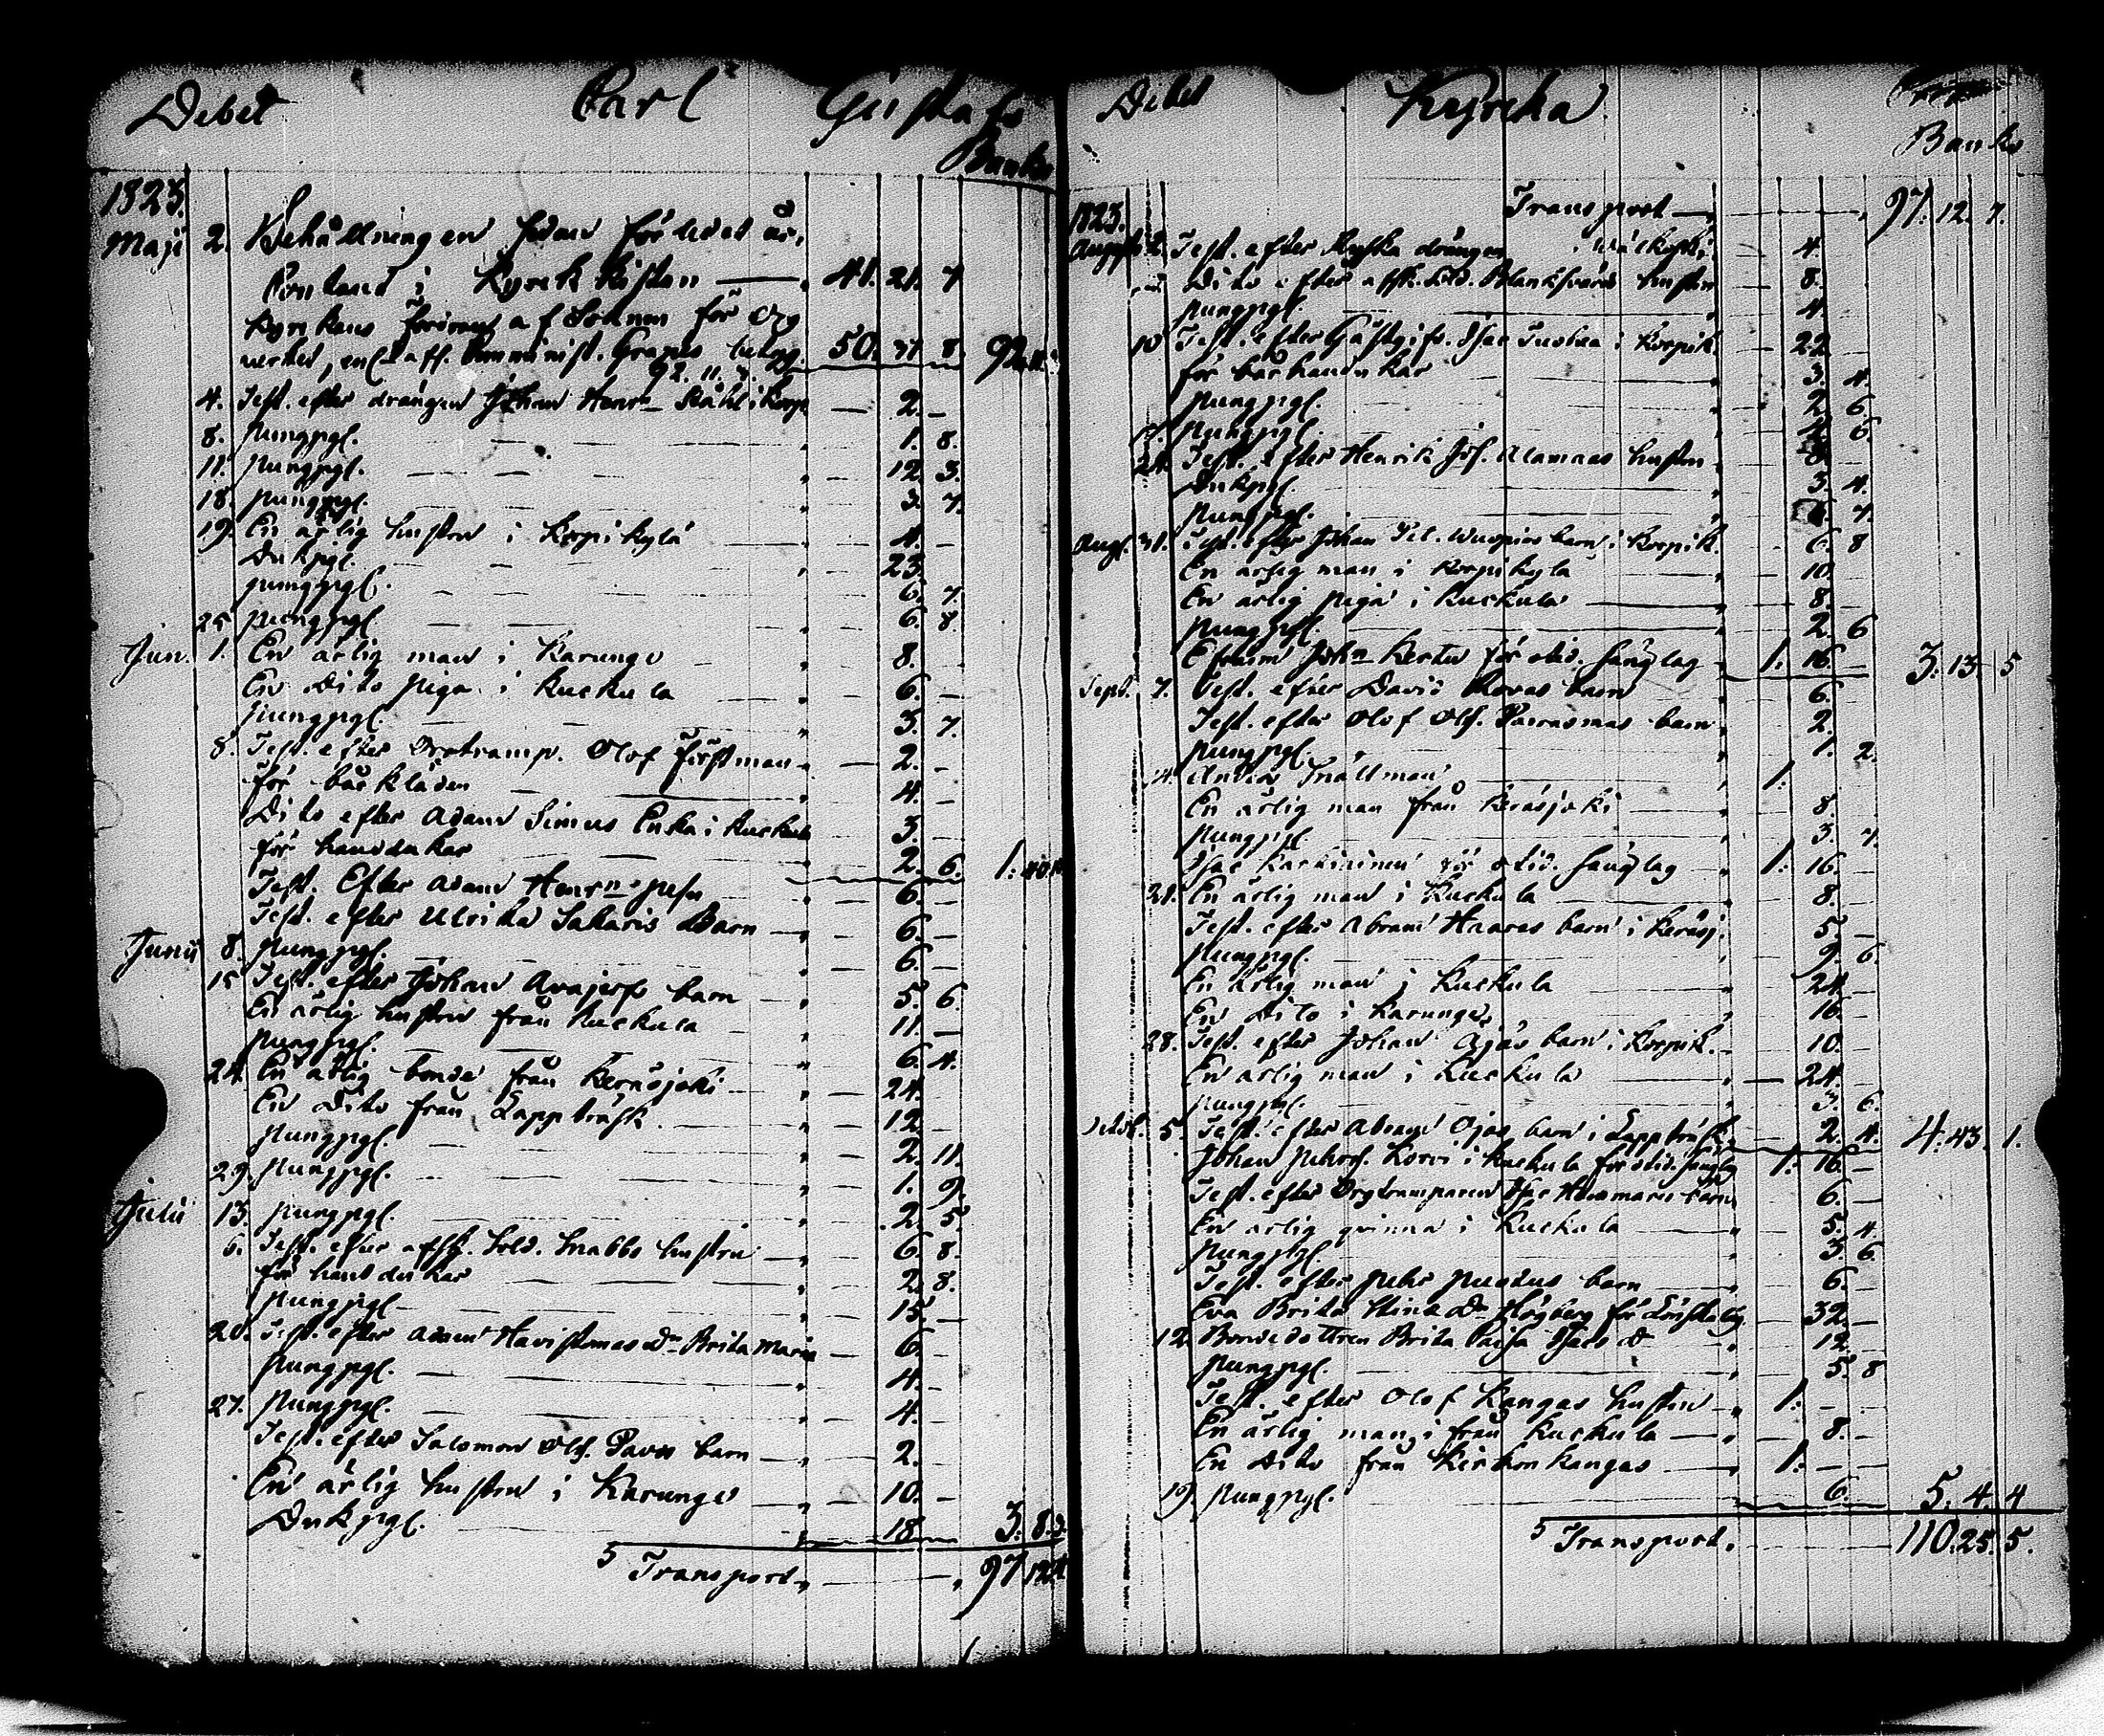 Debet Carl Gustafs
Banko
1823.
Maji 2. Behållningen sedan förledet år,
Contant i Kyrck kistan — 41. 21. 7
Kyrkans fordran af Socknen för Org
verket, enl. aff. Amminist. Grapes betyg. 50. 37 8 92. 11. 3
92. 11. 3.
4. Test. efter drängen Johan Henrs Ståhl i Korpi — 2. –
8. pungpgl. 1. 8.
11. pungpgl. 12. 3.
18. pungpgl. 3. 7.
19. En ärlig hustru i Korpikylä 4. –
Dukpgl. 23.
pungpgl. 6. 7.
25 pungpgl. 6. 8.
Jun. 1. En ärlig man i Karungi 8. –
En Dito piga i Kuckula 6. –
pungpgl. 3. 7.
8. Test. efter Orgtramp. Olof Förstman 2. –
för bårkläden 4. –
Dito efter Adam Simus Enka i Kuckula 3. –
för handukar 2. 6. 1. 40
Test. Efter Adam Henrs 6. –
Test. efter Ulrika Sakaris Barn 6. –
Junii 8. pungpgl. 6. –
15 Test. efter Johan Avajerfs barn 5. 6.
En ärlig hustru från Kuckula 11. –
pungpgl. 6. 4.
24. En ärlig bonde från Keräsjoki 24. –
En Dito från Lappträsk 12. –
pungpgl. 2. 11.
29. pungpgl. 1. 9.
Julii 13. pungpgl. 2. 5.
6. Test. efter afsk. Sold. Snabbs hustru 6. 8.
för handdukar 2. 8.
pungpgl 15. –
20. Test. efter Adam Havistomas Dr Brita Maria 6. –
pungpgl. 4. –
27. pungpgl. 4. –
Test. efter Salomon Ols. Pavos barn 2. –
En ärlig hustru i Karungi 10. –
Dukpgl. 18 – 3. 8. 9.
5 Transport 97 12 7
Debet Kyrcka
Banko
1823. Transport — 97. 12. 7.
Augusti Test. efter Ryska drängen i 4.
Dito efter afsk. Sold. Blanksvärds hustru 8.
pungpgl. 4.
10 Test. efter Gästgifv. Isac i Korpik. 22
för bårhandukar 3. 4.
pungpgl. 2. 6.
17. pungpgl. 6.
24. Test. efter Henrik Joh. Alamaas hustru 8.
Dukpgl. 3. 4.
pungpgl. 6. 7.
Aug. 31. Test. efter Johan barn i Korpik. 6. 8
En ärlig man i Korpikyla 10.
En ärlig piga i Kuckula 8.
pungpgl. 2. 6
Efraim Johns Kerttu för otid. sänglag 1. 16. – 3. 13. 5
Sept. 7. Test. efter David Rovas barn 6.
Test. efter Olof Ols. barn 2.
pungpgl. 1. 2.
14. Anders Snällman 1.
En ärlig man från Keräsjoki 8.
pungpgl. 3. 7.
Isac Karkininen för otid. sänglag 1. 16. –
21. En ärlig man i Kuckula 8.
Test. efter Abram Haaras barn i Keräsj. 5. –
pungpgl. 9. 6.
En ärlig man i Kuckula 24. –
En Dito i Karungi 16. –
28. Test. efter Johan Ojas barn i Korpik. 10.
En ärlig man i Kuckula 24. –
pungpgl. 3. 6.
Octob. 5. Test. efter Adam Ojas barn i Lappträsk 2. 4. 4. 43. 1.
Johan Pehrs. Korvi i Kuckula för otid. sänglag 1. 16. –
Test. efter Orgtramparen Isac barn 6. –
En ärlig qvinna i Kuckula 5. 4.
pungpgl. 3. 6.
Test. efter Pehr barn 6. –
Eva Brita Stina Dr Högberg för Lönskaläg. 32. –
12. Bondedottren Brita Cajsa Isacs Dr 12. –
pungpgl. 5. 8
Test. efter Olof Kangas hustru 1. – –
En ärlig man i från Kuckula 8. –
En Dito från Kirkonkangas 1. – –
19. pungpgl. 6. 5. 4. 4
5 Transport. 110. 25. 5.